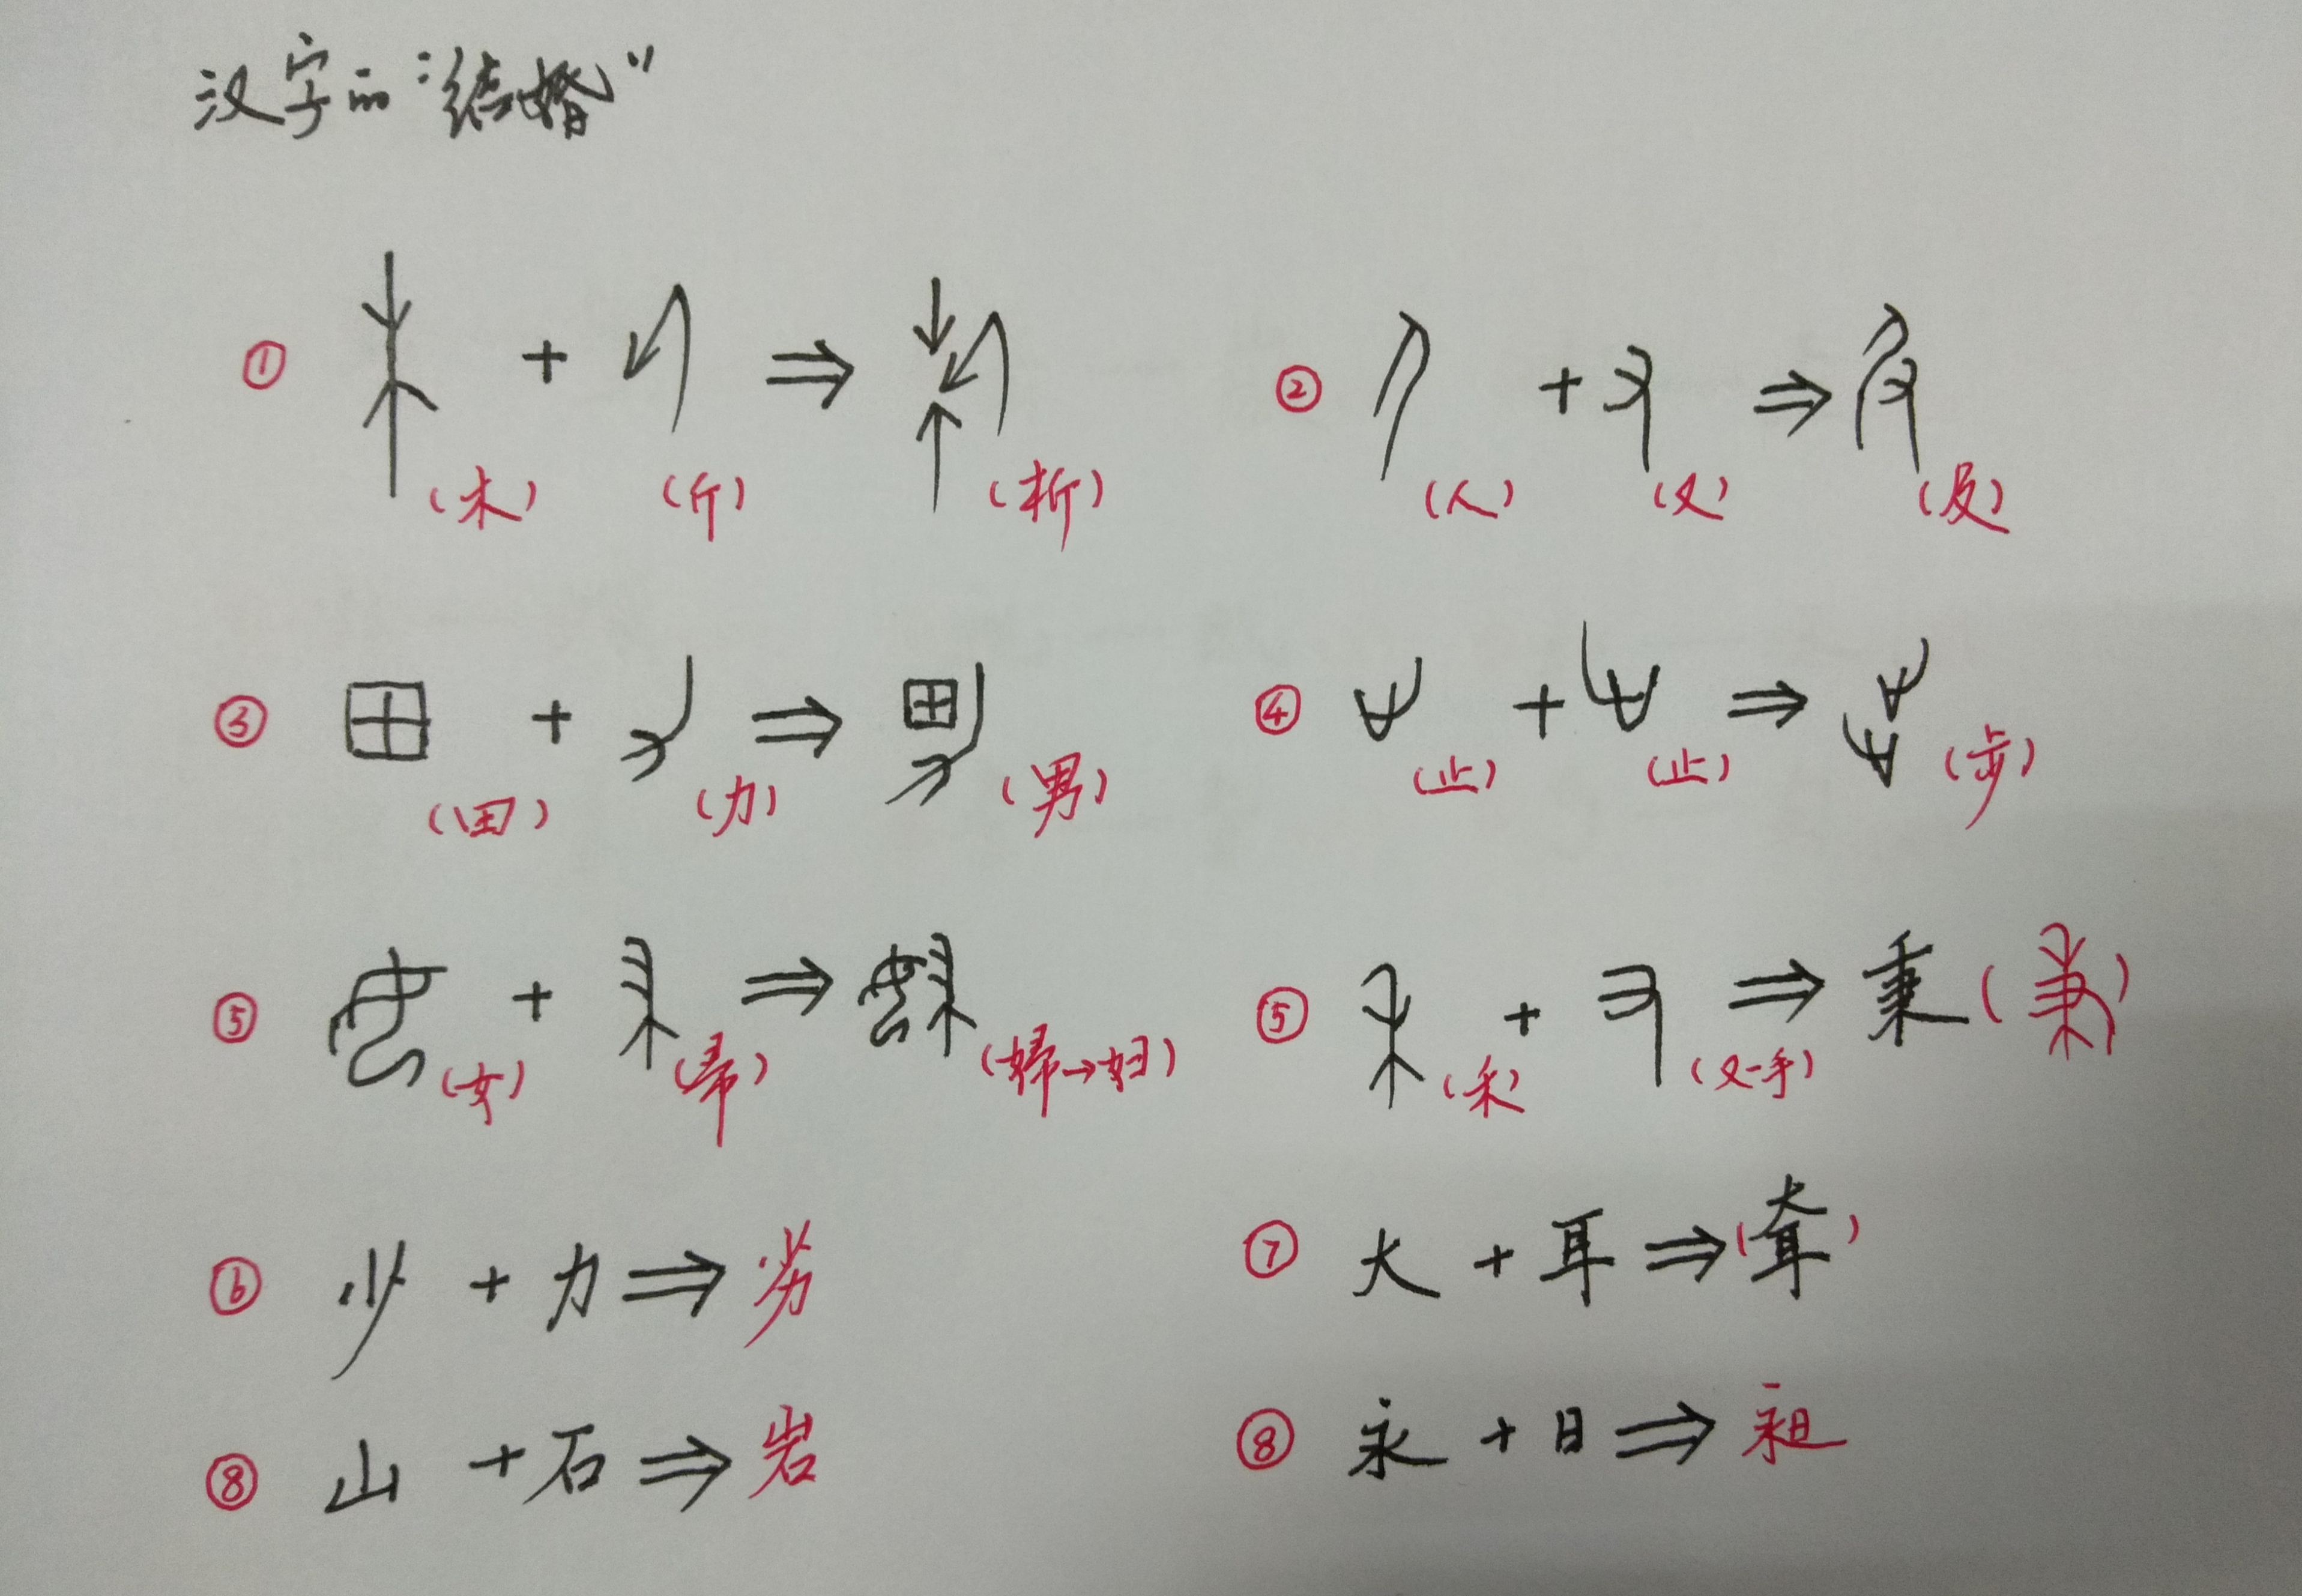 汉字的“结婚”
① + ⇒ (木) (斤) (析)
② + ⇒ (人) (又) (及)
③ + ⇒ (田) (力) (男)
④ + ⇒ (止) (止) (步)
⑤ + ⇒ (女) (帚) (婦→妇)
⑤ + ⇒ 秉 (禾) (又-手)
⑥ 少 + 力 ⇒ 劣
⑦ 大 + 耳 ⇒ (耷)
⑧ 山 + 石 ⇒ 岩
⑧ 永 + 日 ⇒ 昶